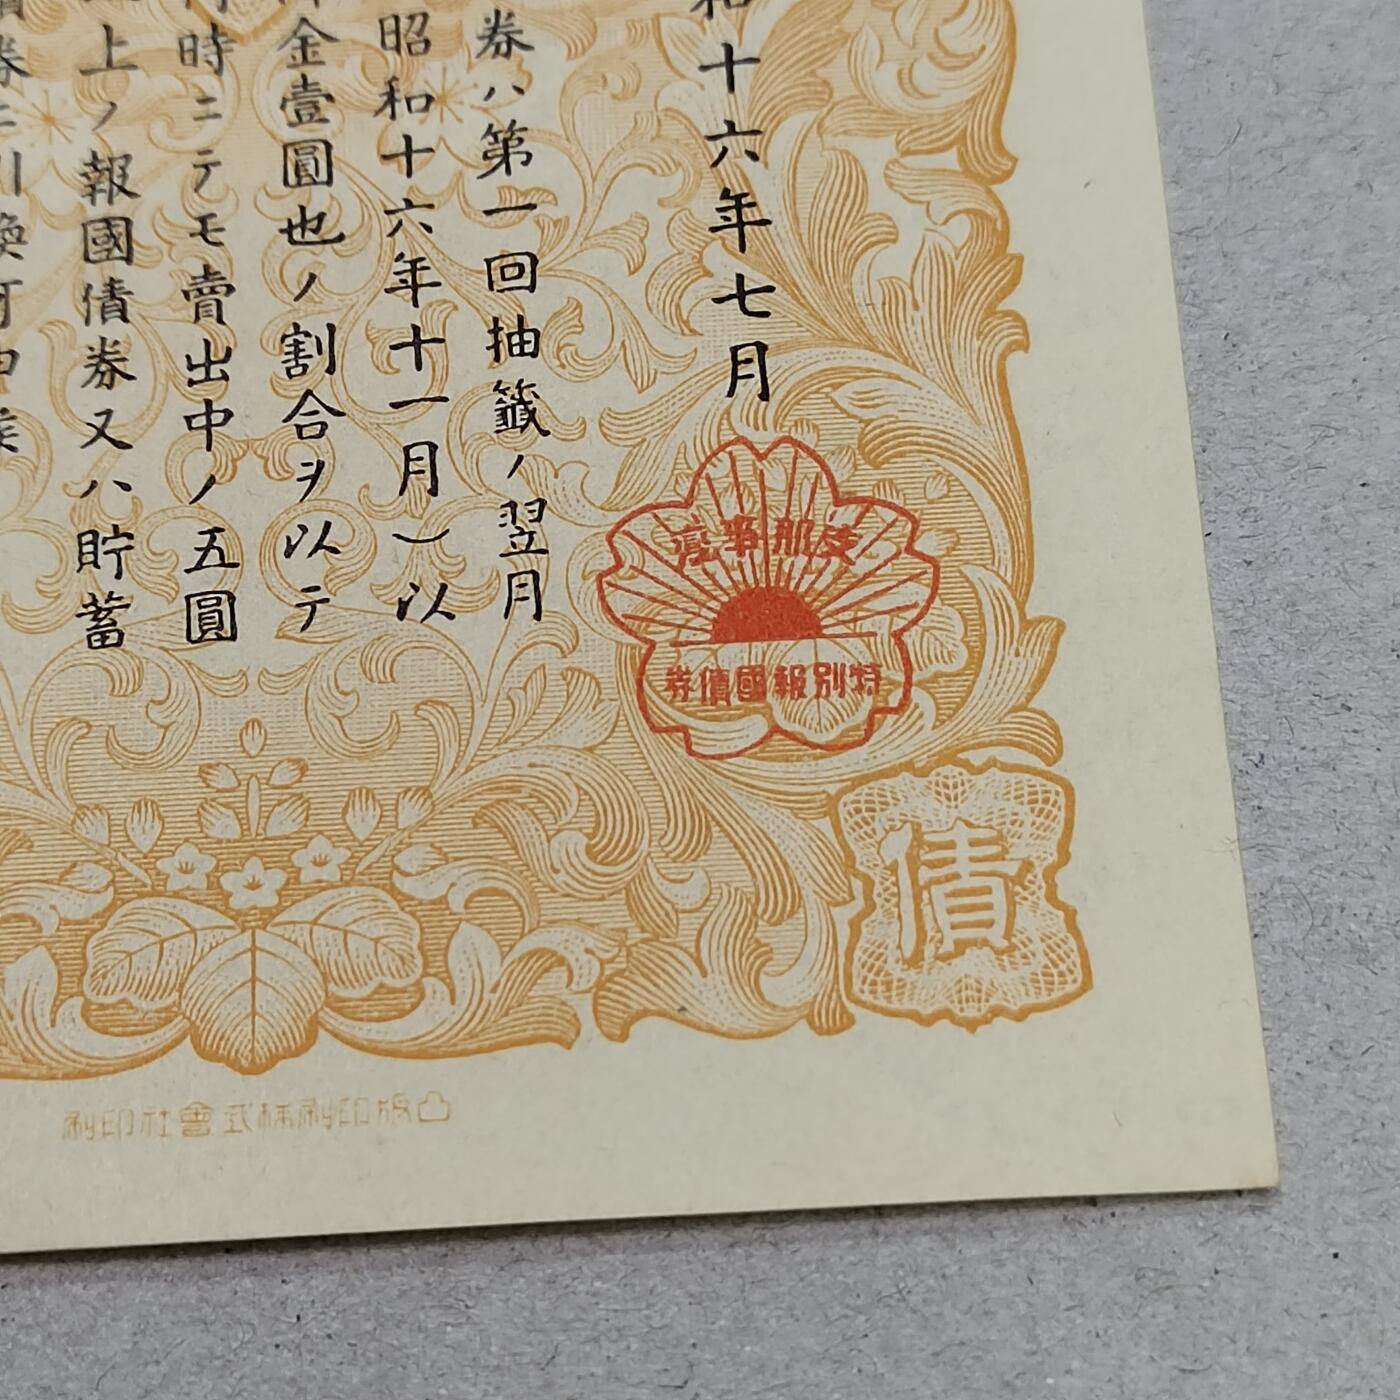 和十六年七月
券ハ第一回抽籤ノ翌月
昭和十六年十一月)以
金壹圓也ノ割合ヲ以テ
時ニテモ賣出中ノ五圓
上ノ報國債券又ハ貯蓄
券ニ引換可申候
支那事變
特別報國債券
債
凸版印刷株式會社印刷